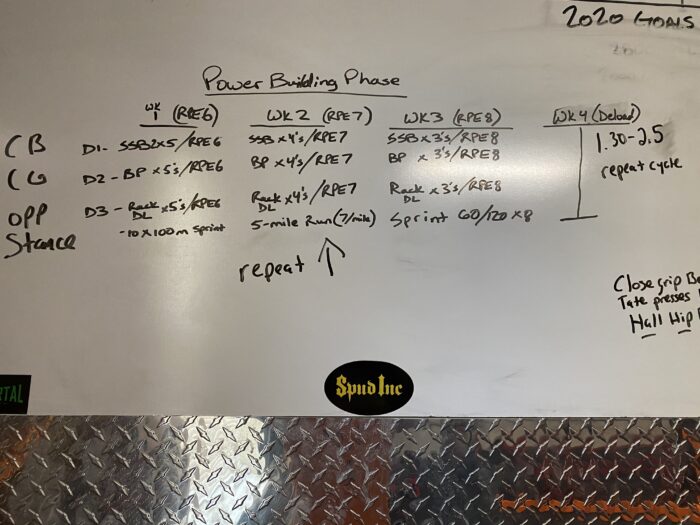 2020 GOALS
Power Building Phase
WK 1 (RPE6) WK2 (RPE7) WK3 (RPE8) WK4 (Deload)
CB D1- SSB2x5/RPE6 SSBx4's/RPE7 SSBx3's/RPE8 1.30-2.5
CG D2-BPx5's/RPE6 BPx4's/RPE7 BP x 3's/RPE8 repeat cycle
OPP Stance D3-Rack DL x5's/RPE6 Rack DL x4's/RPE7 Rack DL x3's/RPE8
-10x100m sprint 5-mile Run(7/mile) Sprint 60/120x8
repeat ↑
Close grip Be
Tate presses
Hall Hip
SpudInc
RTAL